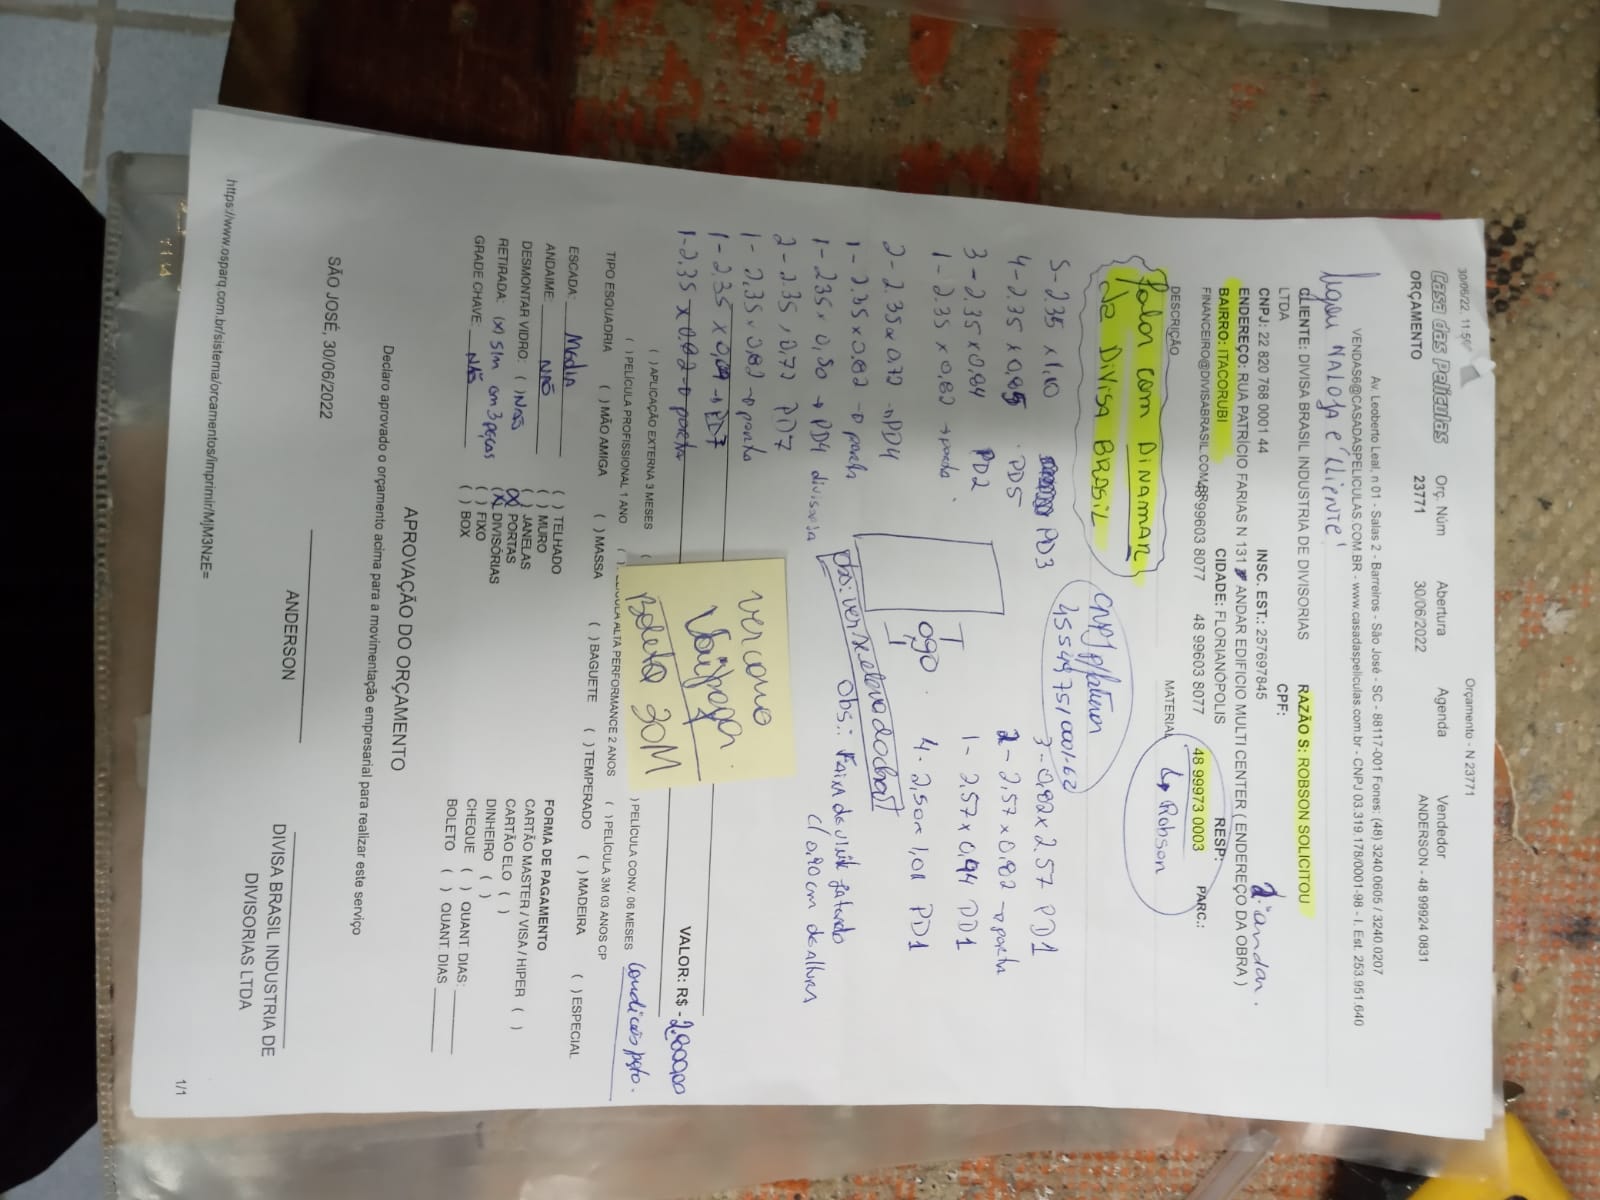 30/06/22, 11:56
Orçamento - N 23771
Casa das Películas
Orç. Núm
Abertura
Agenda
Vendedor
ORÇAMENTO
23771
30/06/2022
ANDERSON - 48 99924 0831
Av. Leoberto Leal, n 01 - Salas 2 - Barreiros - São José - SC - 88117-001 Fones: (48) 3240.0605 / 3240.0207
VENDAS6@CASADASPELICULAS.COM.BR - www.casadaspeliculas.com.br - CNPJ 03.319.178/0001-98 - I. Est. 253.951.640
Ligou na loja e' cliente'
CLIENTE: DIVISA BRASIL INDUSTRIA DE DIVISORIAS LTDA
RAZÃO S: ROBSON SOLICITOU
CNPJ: 22 820 768 0001 44
INSC. EST.: 257697845
CPF:
RESP:
2º andar.
ENDEREÇO: RUA PATRÍCIO FARIAS N 131 ANDAR EDIFICIO MULTI CENTER ( ENDEREÇO DA OBRA )
BAIRRO: ITACORUBI
CIDADE: FLORIANÓPOLIS
FINANCEIRO@DIVISABRASIL.COM.BR
48 99603 8077
48 99603 8077
48 99973 0003
PARC.:
↳ Robson
DESCRIÇÃO
MATERIAL
Falar com DINAMAR
da DIVISA BRASIL
CNPJ p/faturar
45549751/0001-62
5-2.35 x 1,10 PD3
4-2.35 x 0,85 PD5
3-2.35 x 0,84 PD2
1-2.35 x 0,82 → porta
2-2.35 x 0,72 → PD4
1-2.35 x 0,82 → porta
1-2.35 x 0,80 → PD4 divisória
2-2.35 x 0,72 PD7
1-2.35 x 0,82 → porta
1-2.35 x 0,69 → PD7
1-2.35 x 0,82 → porta
3-0,82 x 2,57 PD1
2-2,57 x 0,82 → porta
1-2,57 x 0,94 PD1
4-2,50 x 1,01 PD1
0,90
Obs.: Faixa de vinil jateado
c/ 0,90 cm de altura
ver como
Vai pagar
Boleto 30M
VALOR: R$ - 2.800,00
( ) APLICAÇÃO EXTERNA 3 MESES
( ) PELÍCULA CONV. 06 MESES
Condições pgto.
( ) PELÍCULA PROFISSIONAL 1 ANO
PELÍCULA ALTA PERFORMANCE 2 ANOS
( ) PELÍCULA 3M 03 ANOS CP
TIPO ESQUADRIA
( ) MÃO AMIGA
( ) MASSA
( ) BAGUETE
( ) TEMPERADO
( ) MADEIRA
( ) ESPECIAL
ESCADA: Média
ANDAIME: NÃO
DESMONTAR VIDRO: ( ) NÃO
RETIRADA: (x) Sim em 3 peças
GRADE CHAVE: NÃO
( ) TELHADO
( ) MURO
( ) JANELAS
(X) PORTAS
(X) DIVISÓRIAS
( ) FIXO
( ) BOX
FORMA DE PAGAMENTO
CARTÃO MASTER / VISA / HIPER ( )
CARTÃO ELO ( )
DINHEIRO ( )
CHEQUE ( ) QUANT. DIAS:
BOLETO ( ) QUANT. DIAS
APROVAÇÃO DO ORÇAMENTO
Declaro aprovado o orçamento acima para a movimentação empresarial para realizar este serviço
SÃO JOSÉ, 30/06/2022
ANDERSON
DIVISA BRASIL INDUSTRIA DE
DIVISORIAS LTDA
https://www.osparq.com.br/sistema/orcamentos/imprimir/MjM3NzE=
1/1